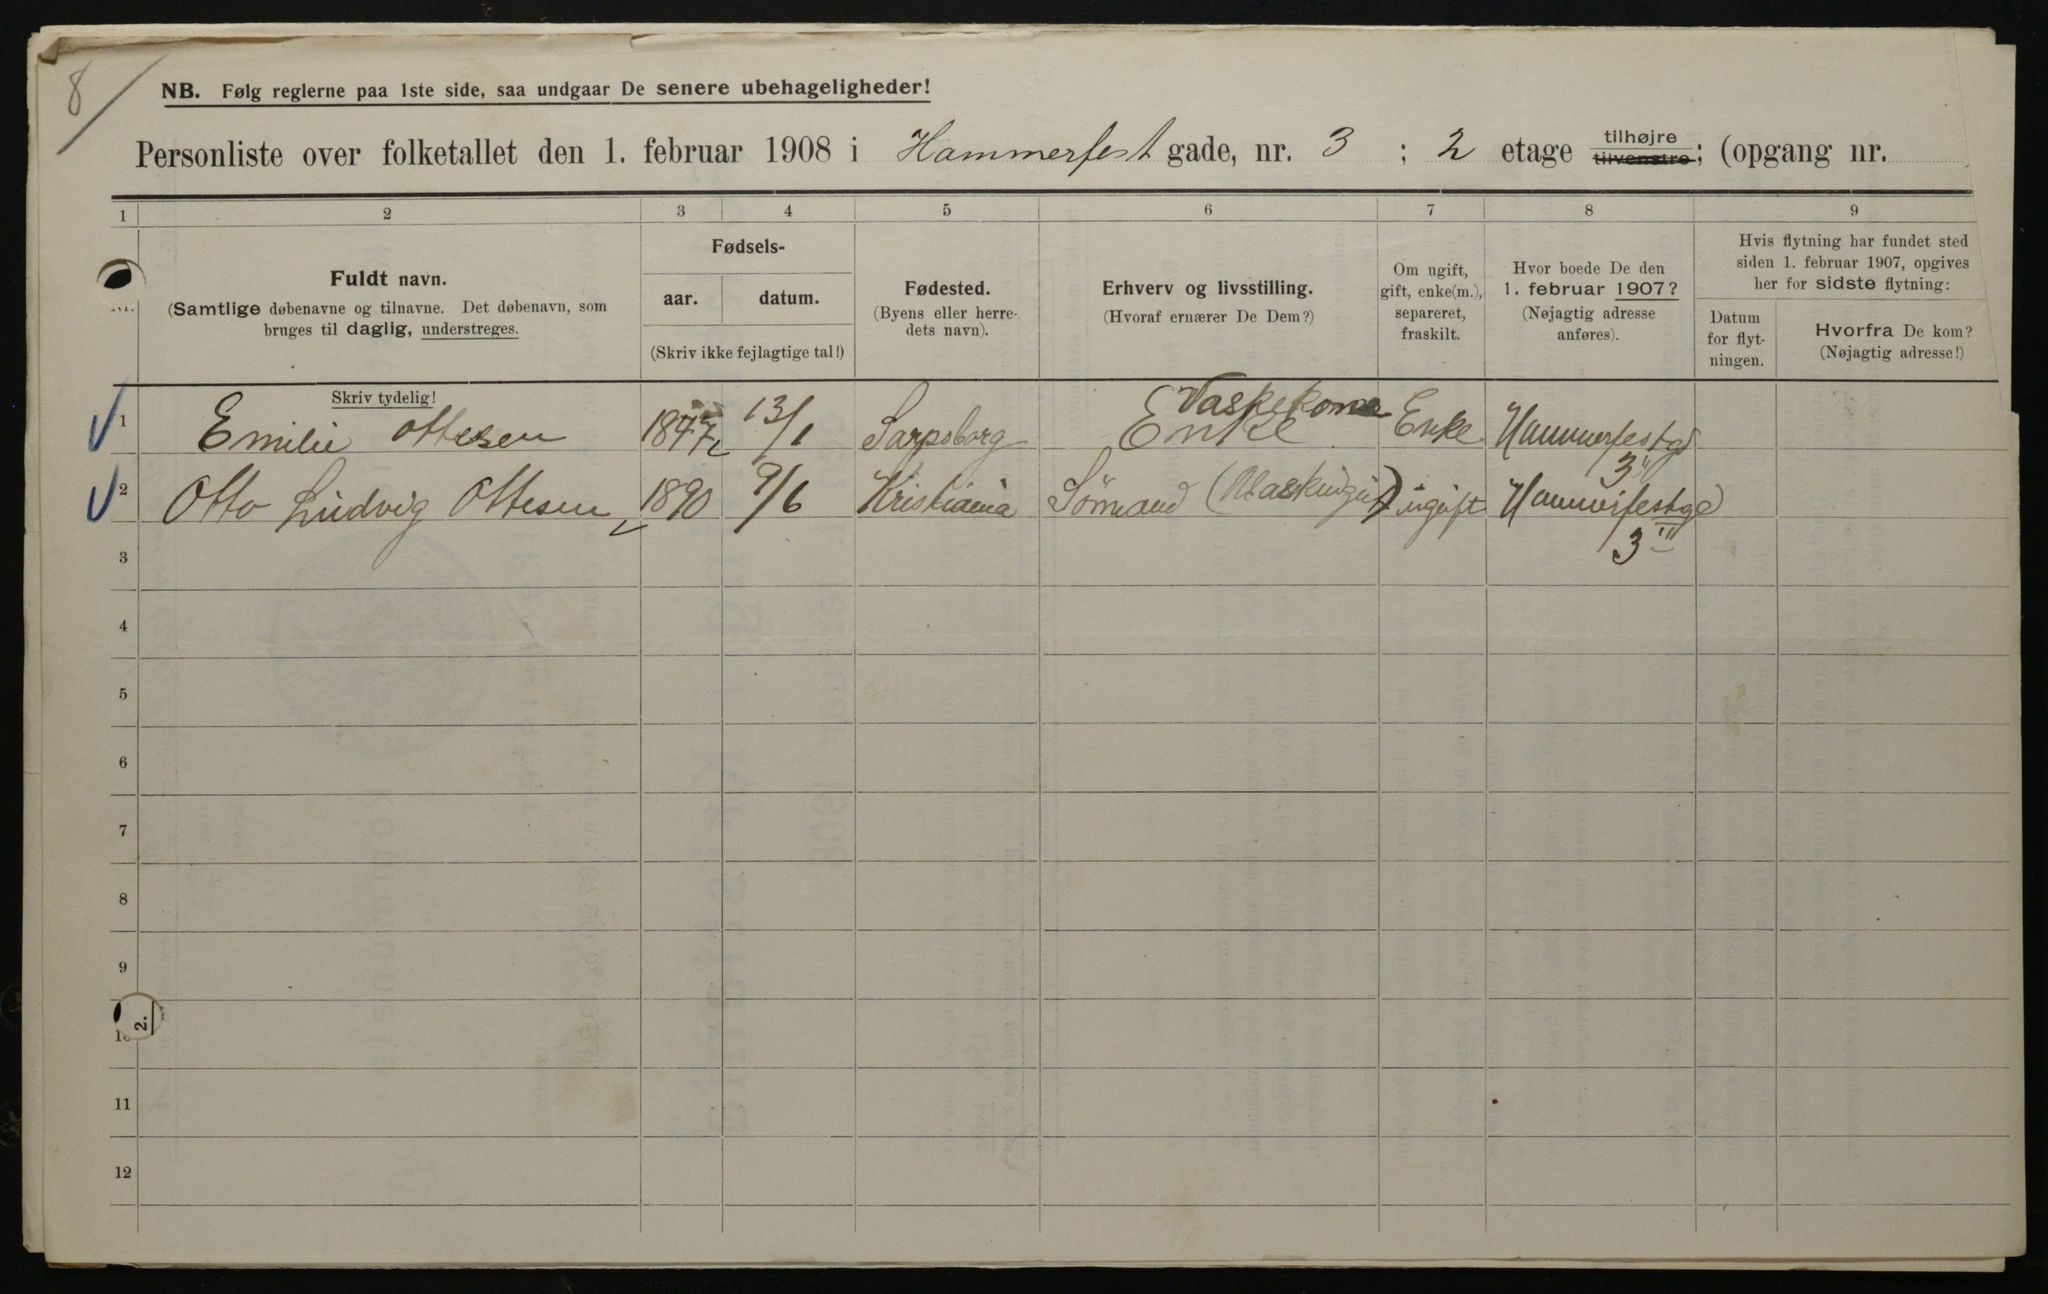 8
NB. Følg reglerne paa 1ste side, saa undgaar De senere ubehageligheder!
Personliste over folketallet den 1. februar 1908 i Hammerfest gade, nr. 3 ; 2 etage tilhøjre tilvenstre; (opgang nr.
1 2 3 4 5 6 7 8 9
Nr.
Fuldt navn.
(Samtlige døbenavne og tilnavne. Det døbenavn, som
bruges til daglig, understreges.
Fødsels-
aar. datum.
(Skriv ikke fejlagtige tal!)
Fødested.
(Byens eller herre-
dets navn).
Erhverv og livsstilling.
(Hvoraf ernærer De Dem?)
Om ugift,
gift, enke(m.),
separeret,
fraskilt.
Hvor boede De den
1. februar 1907?
(Nøjagtig adresse
anføres).
Hvis flytning har fundet sted
siden 1. februar 1907, opgives
her for sidste flytning:
Datum
for flyt-
ningen.
Hvorfra De kom?
(Nøjagtig adresse!)
Skriv tydelig!
Vaskekone
1 Emilie Ottesen 1847 13/1 Sarpsborg Enke Enke Hammerfestgd
3
2 Otto Ludvig Ottesen 1890 9/6 Kristiania Sömand ugift Hammerfestgd
3 III
3
4
5
6
7
8
9
2.
10
11
12